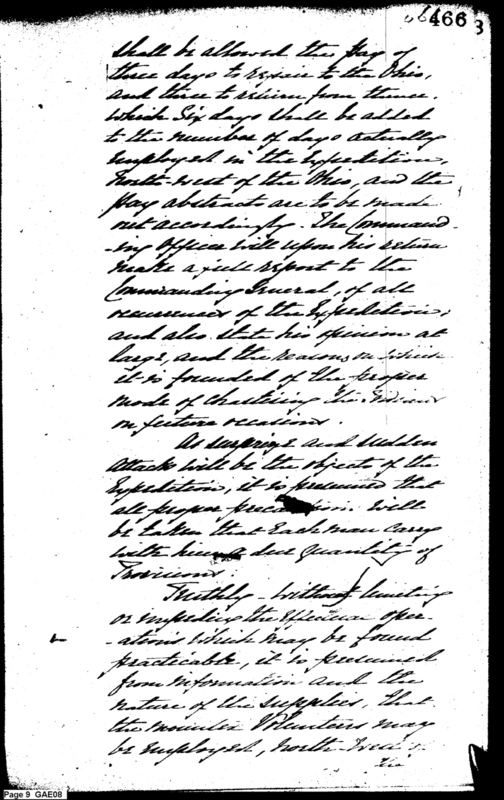 466
3
shall be allowed the pay of
three days to repair to the Ohio,
and three to return from thence,
which Six days shall be added
to the number of days actually
employed in the expedition,
North-west of the Ohio, and the
pay abstracts are to be made
out accordingly. The Command-
-ing Officer will upon his return
make a full report to the
Commanding General, of all
occurrences of the Expedition;
and also state his opinion at
large, and the reasons on which
it is founded of the proper
mode of chastising the Indians
on future occasions.
As surprize and sudden
attacks will be the objects of the
Expedition, it is presumed that
all proper precaution will
be taken that each man carry
with him a due quantity of
Provisions
without limiting
or impeding the effectual oper-
-ations which may be found
practicable, it is presumed
from information and the
nature of the supplies, that
the mounted Volunteers may
be employed, North-West
the
Page 9 GAE08